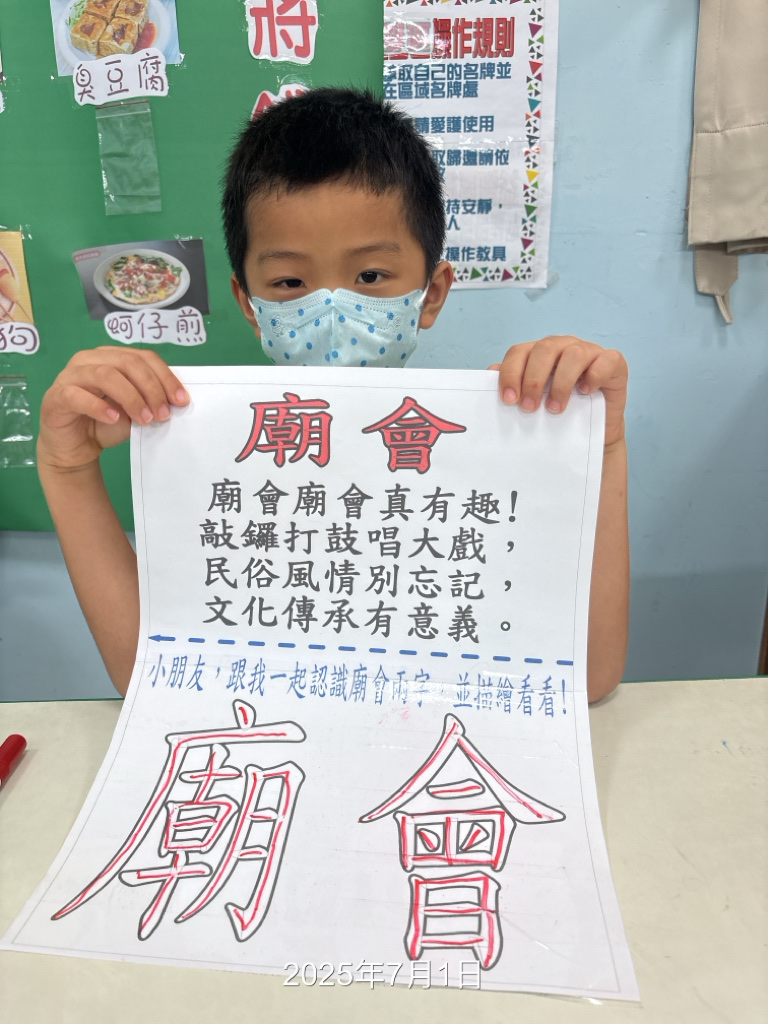 臭豆腐
將
操作規則
取自己的名牌並
在區域名牌處
請愛護使用
取歸還請依
持安靜，
人
操作教具
狗
蚵仔煎
廟會
廟會廟會真有趣!
敲鑼打鼓唱大戲，
民俗風情別忘記，
文化傳承有意義。
小朋友，跟我一起認識廟會兩字，並描繪看看!
廟會
2025年7月1日